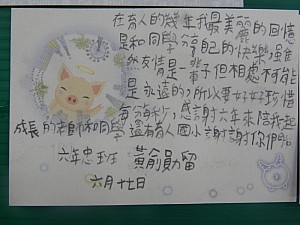 在有人的幾年我最美麗的回憶
是和同學分享自己的快樂,雖
然友情是一輩子但相處不可能
是永遠的,所以要好好珍惜
每一分每一秒,感謝六年來陪我一起
成長的老師和同學還有有人國小謝謝你們
六年忠班 黃俞勛留
六月十七日